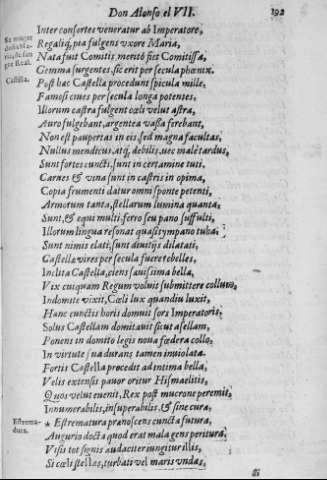 Don Alonso el VII.
192
Inter consortes veneratur ab Imperatore,
Su muger
Regaliq, pta fulgens vxore Maria,
Nata fuit Comitis, meritò fiet Comitissa,
gre Real.
Gemma surgentes, sic erit per secula phœnix.
Castilla.
Post hæc Castella procedunt spicula mille,
Famosi ciues per secula longa potentes,
Illorum castra fulgent cœli velut astra,
Auro fulgebant, argentea vasa ferebant,
Non est paupertas in eis, sed magna facultas,
Nullus mendicus, atq, debilis, nec malè tardus,
Sunt fortes cuncti, sunt in certamine tuti.
Carnes & vina sunt in castris in opima,
Copia frumenti datur omni sponte petenti,
Armorum tanta, stellarum lumina quanta,
Sunt, & equi multi, ferro seu pano suffulti,
Illorum lingua resonat quasi tympano tuba;
Sunt nimis elati, sunt diuitijs dilatati,
Castellæ vires per secula fuere rebelles,
Inclita Castella, ciens sæuissima bella,
Vix cuiquam Regum voluit submittere collum,
Indomite vixit, Cœli lux quandiu luxit,
Hanc cunctis horis domuit sors Imperatoris;
Solus Castellam domitauit sicut asellam,
Ponens in domito legis noua fœdera collo,
In virtute sua durans tamen inuiolata.
Fortis Castella procedit ad intima bella,
Velis extensis pauor oritur Hismaelitis,
Quos velut euenit, Rex post mucrone peremit,
Innumerabilis, insuperabilis, & sine cura,
Estrema-
dura.
* Estrematura prænoscens cuncta futura,
Augurio docta quod erat mala gens peritura;
Visis tot signis audaciter iungitur illis,
Si cœli stellas, turbati vel maris vndas,
Si